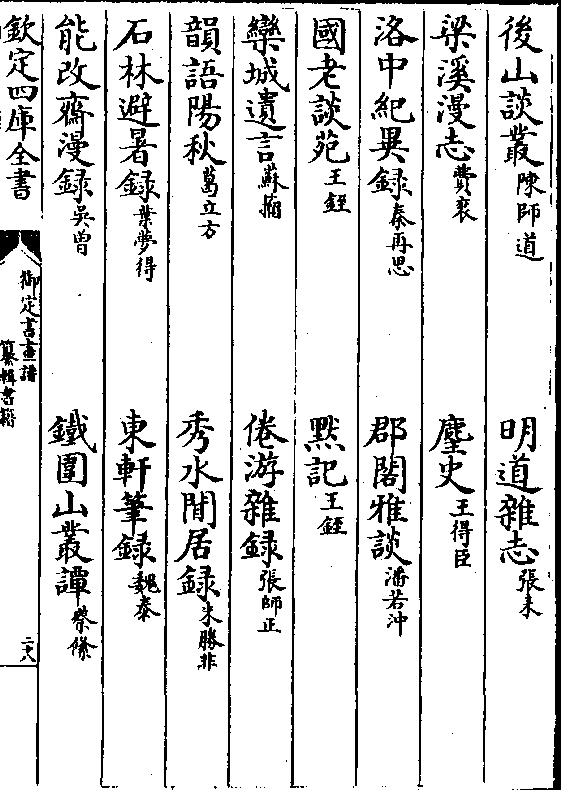 後山談叢陳師道 明道雜志張耒
梁溪漫志費衮 麈史王得臣
洛中紀異録秦再思 郡閣雅談潘若沖
國老談苑王銍 黙記王銍
欒城遺言蘇籀 倦游雜録張師正
韻語陽秋葛立方 秀水閒居録朱勝非
石林避暑録葉夢得 東軒筆録魏泰
能改齋漫録吳曾 鐵圍山叢譚蔡絛
欽定四庫全書
御定書畫譜
纂輯書籍
二十八